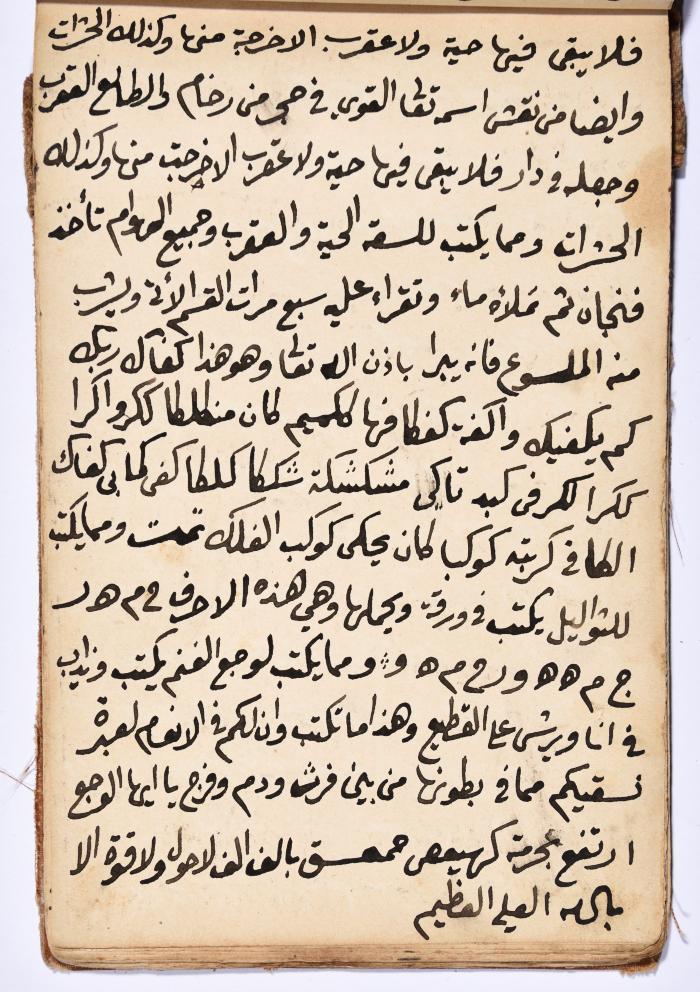 فلا يبقى فيها حية ولا عقرب الا خرجة منها وكذلك الحشرات
وايضا من نقش اسمه تعا القوي في حجر من رخام والطالع العقرب
وجعله في دار فلا يبقى فيها حية ولا عقرب الا خرجت منها وكذلك
الحشرات ومما يكتب للسعة الحية والعقرب وجميع الهوام تأخذ
فنجان ثم تملاؤه ماء وتقراء عليه سبع مرات القسم الأتي ويشرب
منه الملسوع فانه يبرا باذن الله تعا وهو هذا كفاك ربك
كم يكفيك واكفة كفكافها ككميم كان منكلكا ككروا كرا
ككرا لكر في كبد تاكي مشكشكة شككا كلكا كفى كما بي كفاك
الكافي كربته كوكبا كان يحكى كوكب الفلك تمت ومما يكتب
للثواليل يكتب في ورقة ويحملها وهي هذه الاحرف
ج م ه ه و ومما يكتب لوجع الغنم يكتب ويذاب
في انا ويرش على القطيع وهذا ما تكتب وان لكم في الانعام لعبرة
نسقيكم مما في بطونها من بين فرث ودم وفرج يا ايها الوجع
ارتفع بحرمة كهيعص حمعسق بالف الف لاحول ولا قوة الا
بالله العلي العظيم